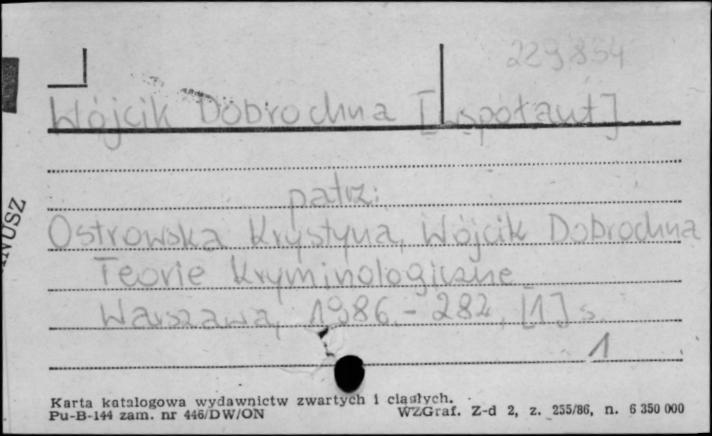 229854
Wójcik Dobrochna [współaut]
patrz:
Ostrowska Krystyna, Wójcik Dobrochna
Teorie kryminologiczne
Warszawa, 1986. - 282, [1] s.
1
NUSZ
Karta katalogowa wydawnictw zwartych i ciągłych.
Pu-B-144 zam. nr 446/DW/ON WZGraf. Z-d 2, z. 255/86, n. 6 350 000